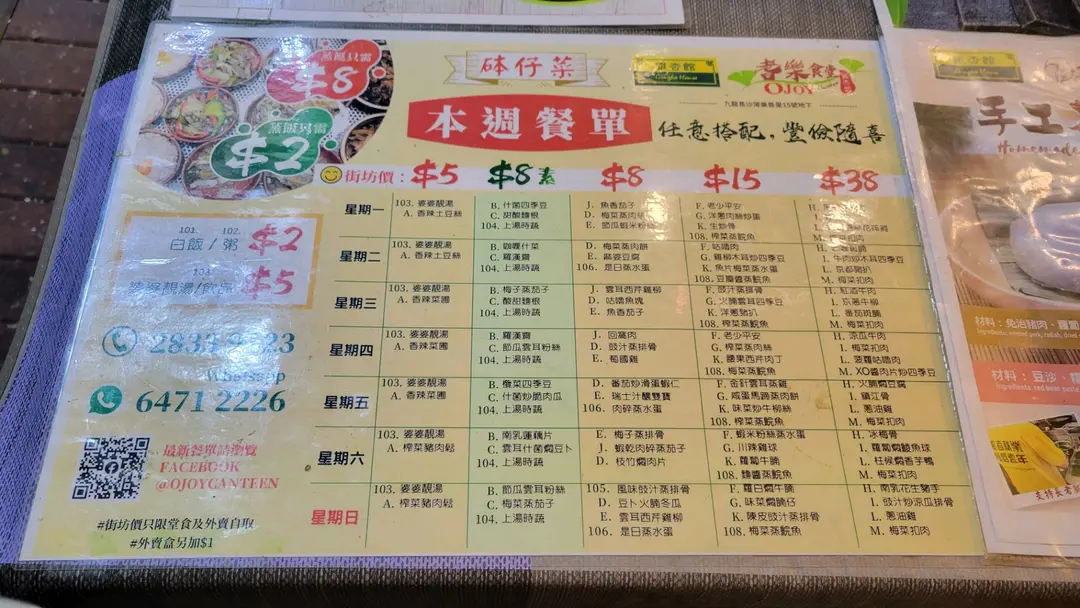 蒸飯只需
$8
蒸飯只需
$2
砵仔菜
耆樂食堂
OJOY
九龍長沙灣廣香里15號地下
本週餐單
任意搭配,豐儉隨喜
街坊價: $5 $8素 $8 $15 $38
101. 102.
白飯/粥 $2
103.
婆婆靚湯/飲品 $5
Whatsapp
6471 2226
最新餐單請瀏覽
FACEBOOK
@OJOYCANTEEN
#街坊價只限堂食及外賣自取
#外賣盒另加$1
星期一
103. 婆婆靚湯 B. 什菌四季豆 J. 魚香茄子 F. 老少平安
A. 香辣土豆絲 C. 甜酸麵根 D. 梅菜蒸肉 G. 洋蔥肉絲炒蛋
104. 上湯時蔬 E. 節瓜蝦米粉 K. 生炒骨
108. 榨菜蒸鯇魚 M. 梅菜扣肉
星期二
103. 婆婆靚湯 B. 咖喱什菜 D. 梅菜蒸肉餅 F. 咕嚕肉
A. 香辣土豆絲 C. 羅漢齋 E. 麻婆豆腐 G. 雞柳木耳炒四季豆 I. 牛肉炒木耳四季豆
104. 上湯時蔬 106. 是日蒸水蛋 K. 魚片梅菜蒸水蛋 L. 京都豬扒
108. 豆瓣醬蒸鯇魚 M. 梅菜扣肉
星期三
103. 婆婆靚湯 B. 梅子蒸豆腐 J. 雲耳西芹雞柳 F. 豉汁蒸排骨 H. 紅酒牛肉
A. 香辣菜圃 C. 酸甜麵根 D. 咕嚕魚塊 G. 火腩雲耳四季豆 I. 京蔥牛柳
104. 上湯時蔬 E. 魚香茄子 K. 洋蔥豬扒 L. 番茄斑腩
108. 榨菜蒸鯇魚 M. 梅菜扣肉
星期四
103. 婆婆靚湯 B. 羅漢齋 J. 回窩肉 F. 老少平安 H. 涼瓜牛肉
A. 香辣菜圃 C. 節瓜雲耳粉絲 D. 豉汁蒸排骨 G. 榨菜蒸肉絲 I. 梅菜扣肉
104. 上湯時蔬 E. 葡國雞 K. 腰果西芹肉丁 L. 菠蘿咕嚕肉
108. 梅菜蒸鯇魚 M. XO醬肉片炒四季豆
星期五
103. 婆婆靚湯 B. 欖菜四季豆 D. 番茄炒滑蛋蝦仁 F. 金針雲耳蒸雞 H. 火腩燜豆腐
A. 香辣菜圃 C. 什菌炒脆肉瓜 E. 瑞士汁釀雙寶 G. 咸蛋馬蹄蒸肉餅 I. 鎮江骨
104. 上湯時蔬 106. 肉碎蒸水蛋 K. 味菜炒牛柳絲 L. 蔥油雞
108. 梅菜蒸鯇魚 M. 梅菜扣肉
星期六
103. 婆婆靚湯 B. 南乳蓮藕片 E. 梅子蒸排骨 F. 蝦米粉絲蒸水蛋 H. 冰梅骨
A. 榨菜豬肉鬆 C. 雲耳什菌燜豆卜 J. 蝦乾肉碎蒸茄子 G. 川辣雞球 I. 蘿蔔燜鯪魚球
104. 上湯時蔬 D. 枝竹燜肉片 K. 蘿蔔牛腩 L. 柱候燜香芋鴨
108. 麵醬蒸鯇魚 M. 梅菜扣肉
星期日
103. 婆婆靚湯 B. 節瓜雲耳粉絲 105. 風味豉汁蒸排骨 F. 羅白燜牛腩 H. 南乳花生豬手
A. 榨菜豬肉鬆 C. 梅菜蒸茄子 D. 豆卜火腩冬瓜 G. 味菜燜腩仔 I. 豉汁炒涼瓜排骨
104. 上湯時蔬 E. 雲耳西芹雞柳 K. 陳皮豉汁蒸排骨 L. 蔥油雞
106. 是日蒸水蛋 108. 梅菜蒸鯇魚 M. 梅菜扣肉
手工
材料:免治豬肉、
材料:豆沙、